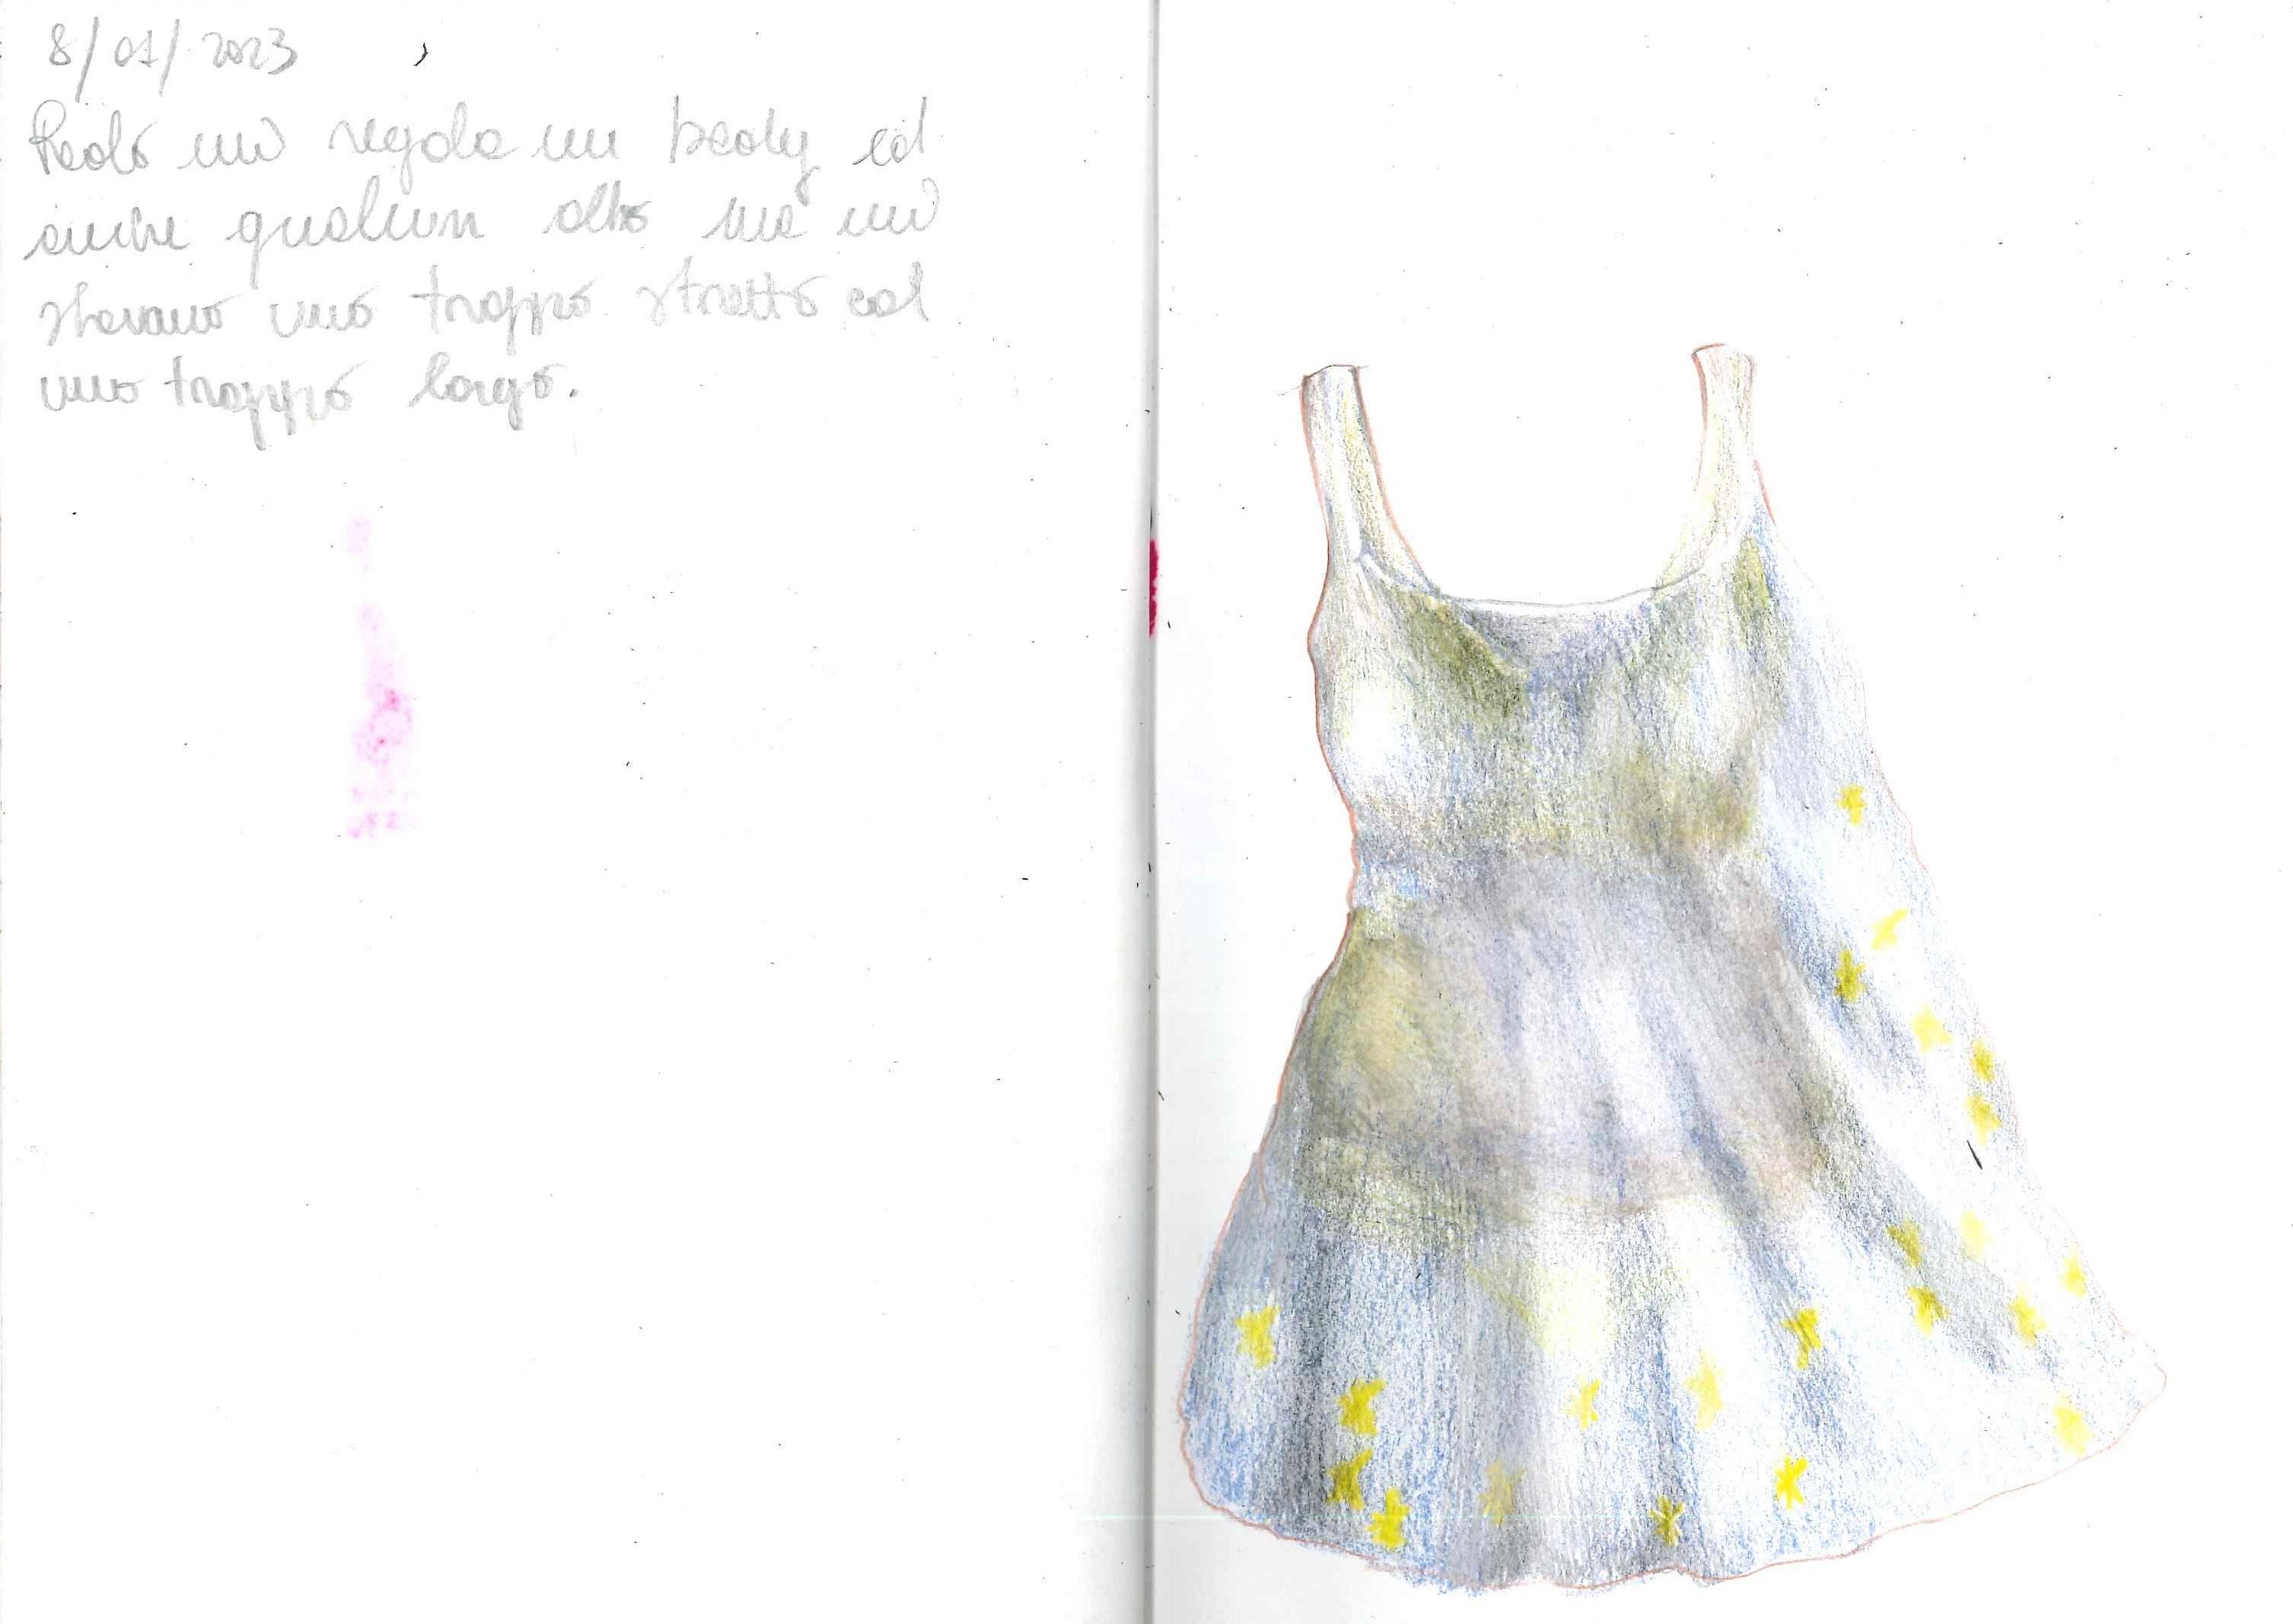 8/01/2023
Paolo mi regala un body ed
anche qualcun altro ma mi
stavano uno troppo stretto ed
uno troppo largo.